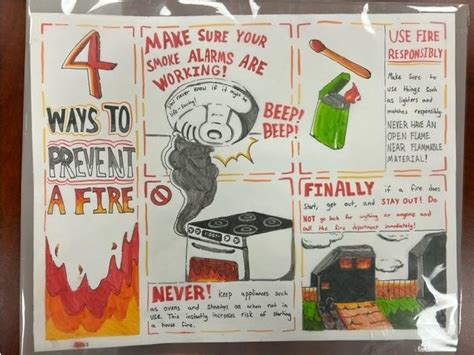 4
WAYS TO
PREVENT
A FIRE
MAKE SURE YOUR
SMOKE ALARMS ARE
WORKING!
you never know if it might be
life-saving!
BEEP!
BEEP!
USE FIRE
RESPONSIBLY
Make sure to
use things such
as lighters and
matches responsibly.
NEVER HAVE AN
OPEN FLAME
NEAR FLAMMABLE
MATERIAL!
NEVER! keep appliances such
as ovens and stoves on while not in
USE. This instantly increases risk of starting
a house fire.
FINALLY if a fire does
start, get out, and STAY OUT! Do
NOT go back for anything or anyone and
call the fire department immediately!